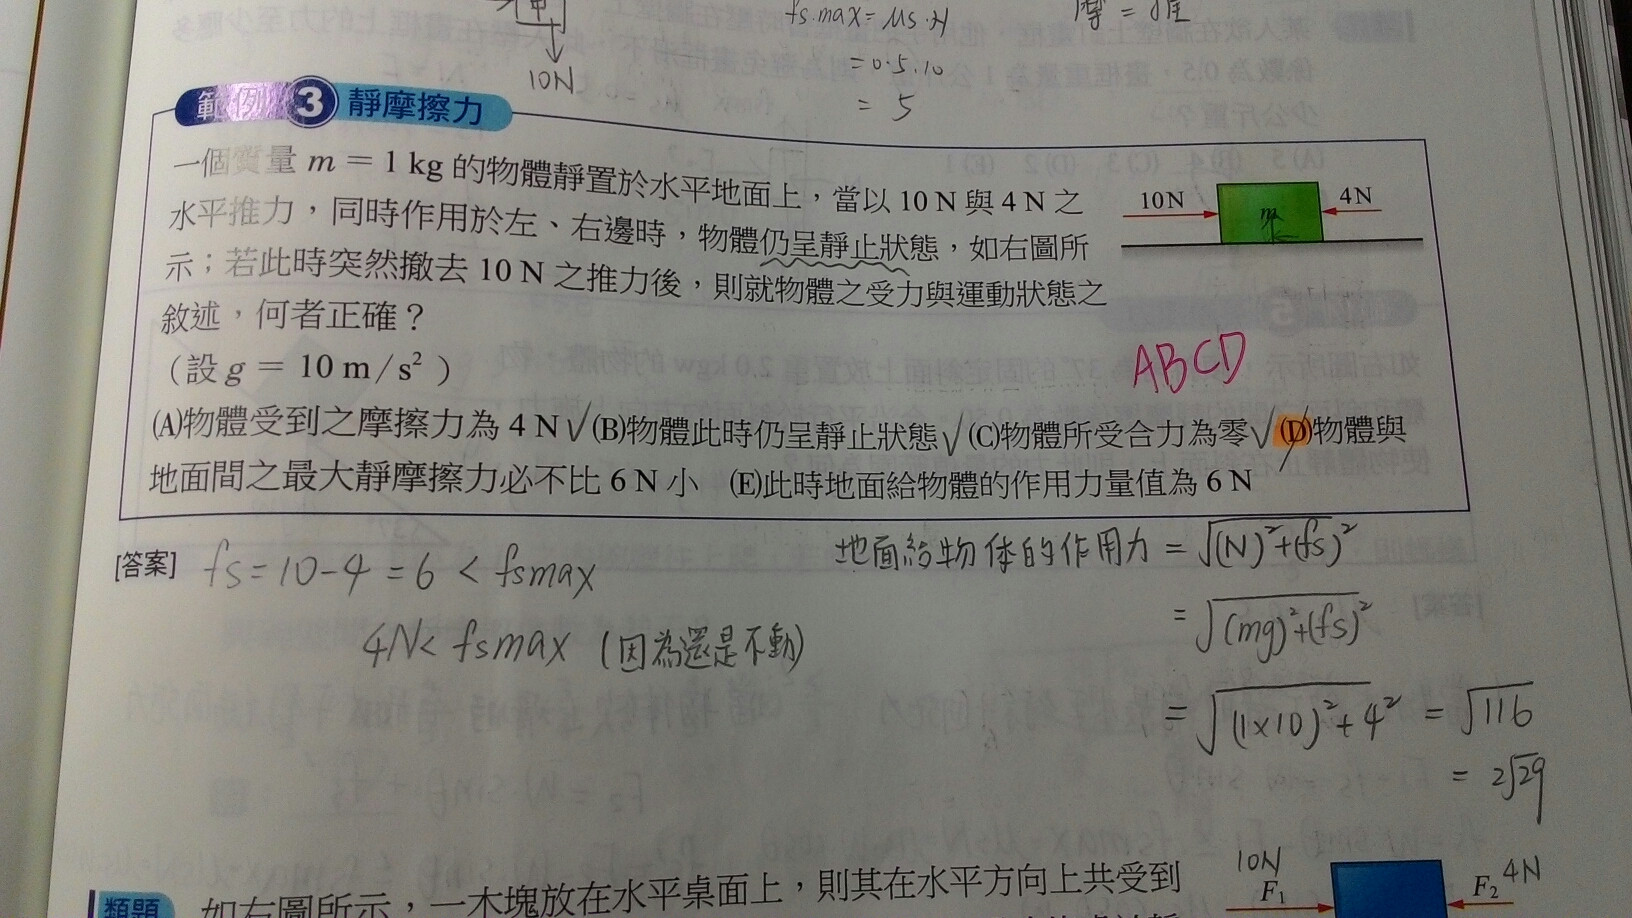 甲
10N
fs.max = μs·N
= 0.5.10
= 5
摩 = 推
範例 3 靜摩擦力
一個質量 m = 1 kg 的物體靜置於水平地面上，當以 10 N 與 4 N 之
水平推力，同時作用於左、右邊時，物體仍呈靜止狀態，如右圖所
示；若此時突然撤去 10 N 之推力後，則就物體之受力與運動狀態之
敘述，何者正確？
(設 g = 10 m/s² )
10N
4N
ABCD
(A)物體受到之摩擦力為 4 N √ (B)物體此時仍呈靜止狀態 √ (C)物體所受合力為零 √ (D)物體與
地面間之最大靜摩擦力必不比 6 N 小 (E)此時地面給物體的作用力量值為 6 N
[答案]
fs = 10-4 = 6 < fsmax
4N < fsmax (因為還是不動)
地面給物体的作用力 = √(N)²+(fs)²
= √(mg)²+(fs)²
= √(1×10)²+4² = √116
= 2√29
類題
如右圖所示，一木塊放在水平桌面上，則其在水平方向上共受到
10N
F₁
F₂ 4N